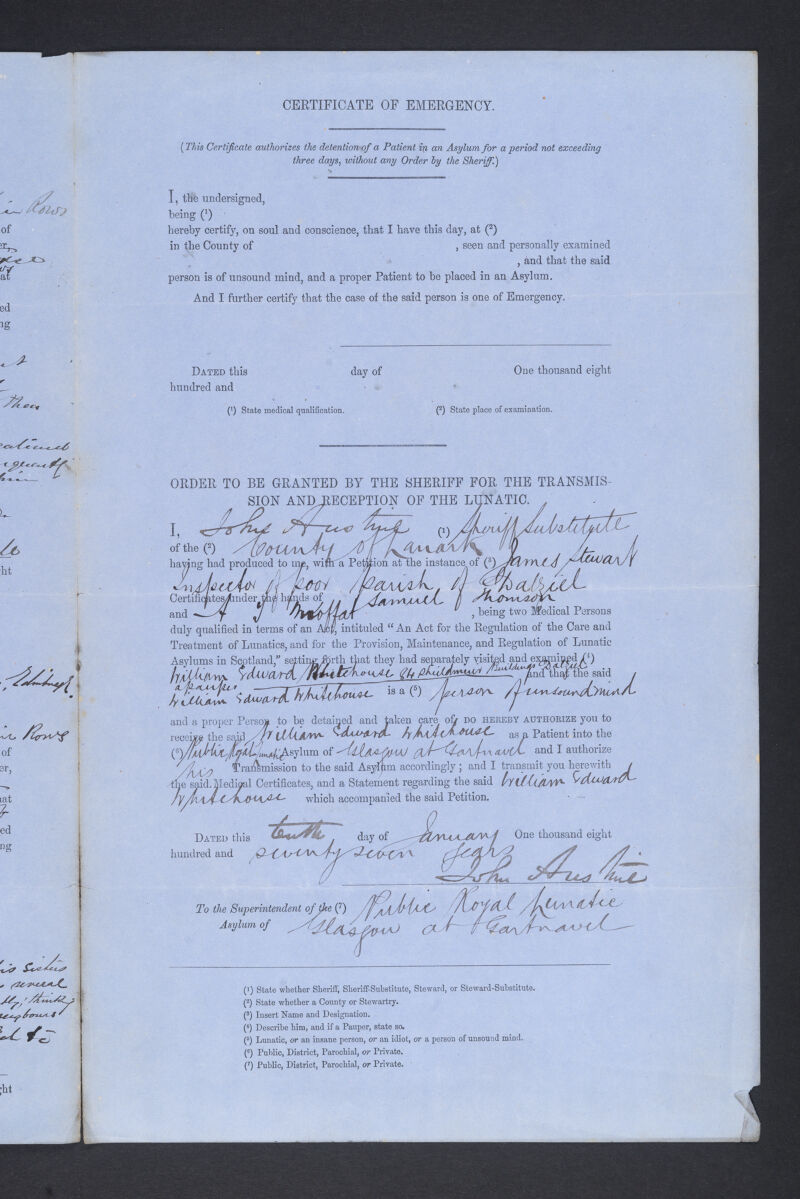 CERTIFICATE OF EMERGENCY.
(This Certificate authorizes the detention of a Patient in an Asylum for a period not exceeding
three days, without any Order by the Sheriff.)
I, the undersigned,
being (¹)
hereby certify, on soul and conscience, that I have this day, at (²)
in the County of , seen and personally examined
, and that the said
person is of unsound mind, and a proper Patient to be placed in an Asylum.
And I further certify that the case of the said person is one of Emergency.
DATED this day of One thousand eight
hundred and
(¹) State medical qualification. (²) State place of examination.
ORDER TO BE GRANTED BY THE SHERIFF FOR THE TRANSMIS-
SION AND RECEPTION OF THE LUNATIC.
I, John Austine (¹) Sheriff Substitute
of the (²) County of Lanark
having had produced to me, with a Petition at the instance of (³) James Stewart
Inspector of poor parish of Dalziel
Certificates under the hands of Samuel Thomson
and A J Moffat , being two Medical Persons
duly qualified in terms of an Act, intituled "An Act for the Regulation of the Care and
Treatment of Lunatics, and for the Provision, Maintenance, and Regulation of Lunatic
Asylums in Scotland," setting forth that they had separately visited and examined (⁴)
William Edward Whitehouse Buildings Dalziel and that the said
a pauper
William Edward Whitehouse is a (⁵) person of unsound mind
and a proper Person to be detained and taken care of, DO HEREBY AUTHORIZE you to
receive the said William Edward Whitehouse as a Patient into the
(⁶) Public Royal Lunatic Asylum of Glasgow at Gartnavel and I authorize
his Transmission to the said Asylum accordingly; and I transmit you herewith
the said Medical Certificates, and a Statement regarding the said William Edward
Whitehouse which accompanied the said Petition.
DATED this tenth day of January One thousand eight
hundred and seventy seven years
John Austine
To the Superintendent of the (⁷) Public Royal Lunatic
Asylum of Glasgow at Gartnavel
(¹) State whether Sheriff, Sheriff-Substitute, Steward, or Steward-Substitute.
(²) State whether a County or Stewartry.
(³) Insert Name and Designation.
(⁴) Describe him, and if a Pauper, state so.
(⁵) Lunatic, or an insane person, or an idiot, or a person of unsound mind.
(⁶) Public, District, Parochial, or Private.
(⁷) Public, District, Parochial, or Private.